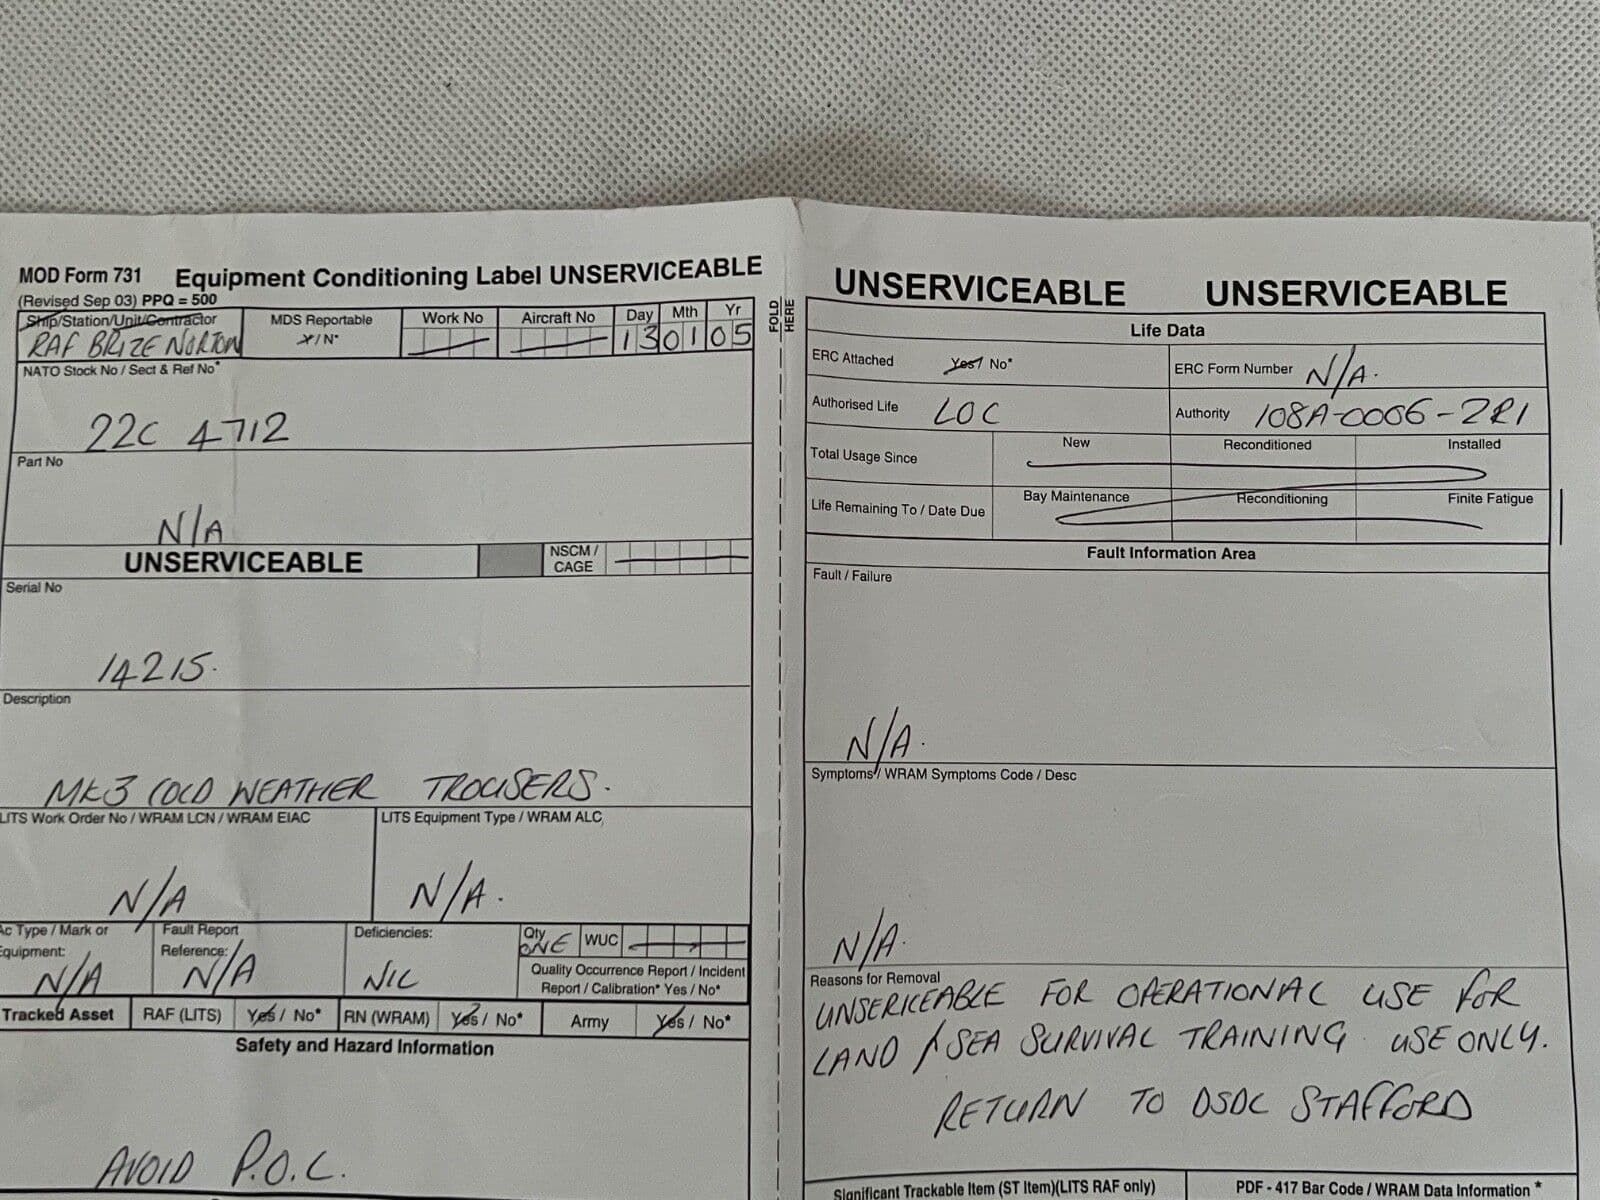 MOD Form 731 Equipment Conditioning Label UNSERVICEABLE
(Revised Sep 03) PPQ = 500
Ship/Station/Unit/Contractor MDS Reportable Work No Aircraft No Day Mth Yr
RAF BRIZE NORTON Y/N* 13 01 05
NATO Stock No / Sect & Ref No*
22C 4712
Part No
N/A
UNSERVICEABLE NSCM / CAGE
Serial No
14215.
Description
MK3 COLD WEATHER TROUSERS.
LITS Work Order No / WRAM LCN / WRAM EIAC LITS Equipment Type / WRAM ALC
N/A N/A.
Ac Type / Mark or Equipment: Fault Report Reference: Deficiencies: Qty ONE WUC
N/A N/A NIL
Quality Occurrence Report / Incident
Report / Calibration* Yes / No*
Tracked Asset RAF (LITS) Yes / No* RN (WRAM) Yes / No* Army Yes / No*
Safety and Hazard Information
AVOID P.O.L.
FOLD HERE
UNSERVICEABLE UNSERVICEABLE
Life Data
ERC Attached Yes/ No* ERC Form Number N/A.
Authorised Life LOC Authority 108A-0006-2R1
Total Usage Since New Reconditioned Installed
Life Remaining To / Date Due Bay Maintenance Reconditioning Finite Fatigue
Fault Information Area
Fault / Failure
N/A.
Symptoms / WRAM Symptoms Code / Desc
N/A.
Reasons for Removal
UNSERICEABLE FOR OPERATIONAL USE FOR
LAND / SEA SURVIVAL TRAINING USE ONLY.
RETURN TO DSDC STAFFORD
Significant Trackable Item (ST Item)(LITS RAF only) PDF - 417 Bar Code / WRAM Data Information *